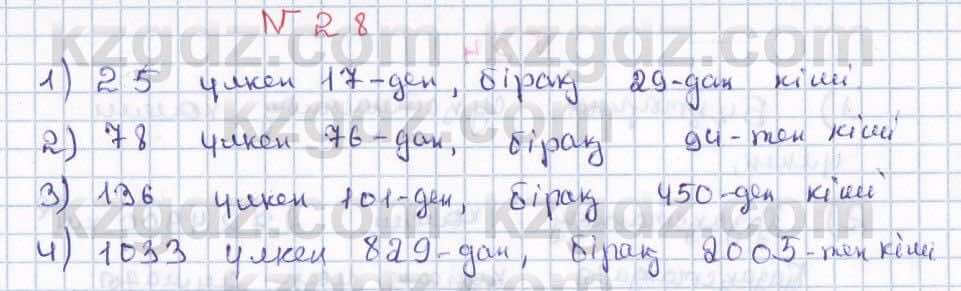 № 28
1) 25 үлкен 17-ден, бірақ 29-дан кіші
2) 78 үлкен 76-дан, бірақ 94-тен кіші
3) 136 үлкен 101-ден, бірақ 450-ден кіші
4) 1033 үлкен 829-дан, бірақ 2005-тен кіші